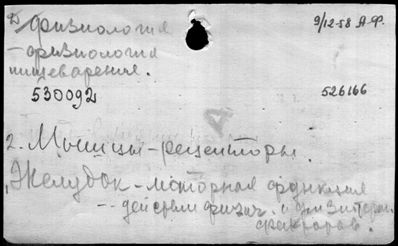 Физиология
9/12-58 А.Ф.
- физиология
пищеварения.
530092
526166
2. Мышцы - рецепторы.
Желудок - моторная функция
-- действие физич. и
факторов.